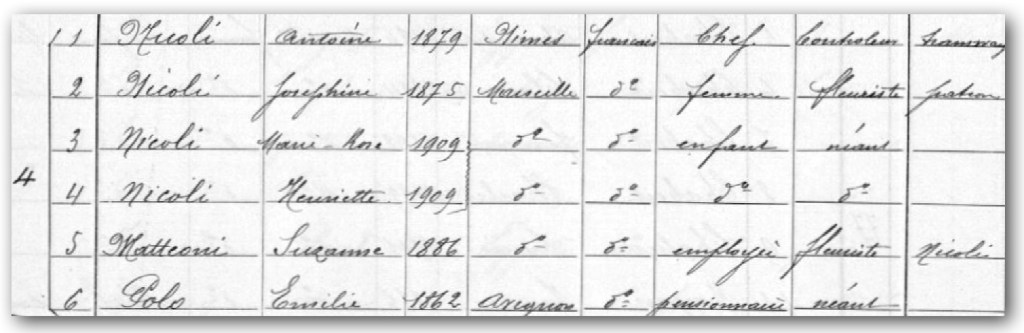 1 Nicoli Antoine 1879 Nimes français Chef. Controleur tramway
2 Nicoli Josephine 1875 Marseille do femme. fleuriste patron
3 Nicoli Marie-Rose 1909 do do enfant néant
4
4 Nicoli Henriette 1909 do do do do
5 Matteoni Suzanne 1886 do do employée fleuriste Nicoli
6 Polo Emilie 1862 Avignon do pensionnaire néant